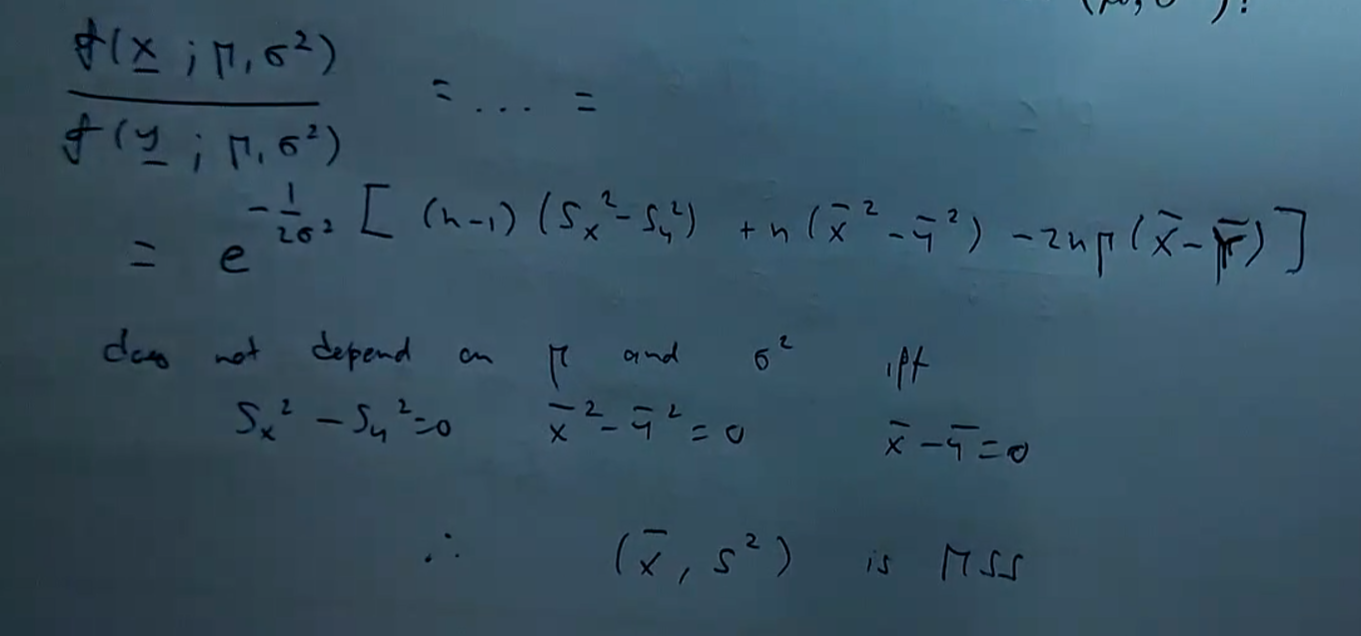 (μ, σ²)!
f(x̲ ; μ, σ²)
f(y̲ ; μ, σ²)
= ... =
= e^{-1/2σ² [ (n-1)(S_x² - S_y²) + n(x̄² - ȳ²) - 2nμ(x̄ - ȳ) ]}
does not depend on μ and σ² iff
S_x² - S_y² = 0 x̄² - ȳ² = 0 x̄ - ȳ = 0
∴ (x̄, s²) is MSS